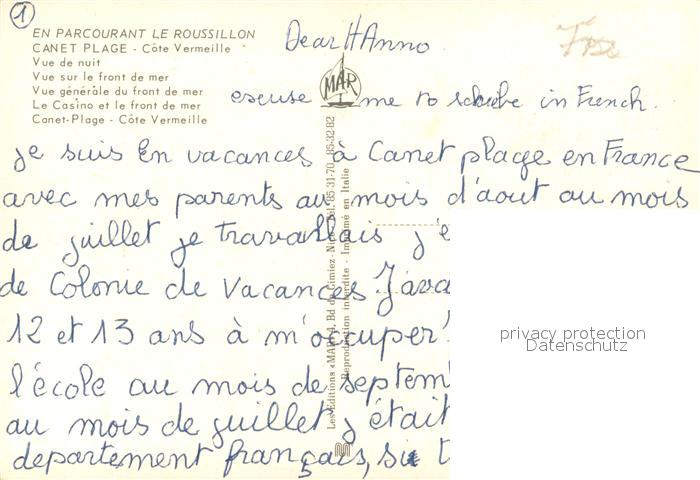 1
EN PARCOURANT LE ROUSSILLON
CANET PLAGE - Côte Vermeille
Vue de nuit
Vue sur le front de mer
Vue générale du front de mer
Le Casino et le front de mer
Canet-Plage - Côte Vermeille
MAR
Dear HAnno
escuse me to scribe in French.
je suis en vacances à Canet plage en France
avec mes parents au mois d'aout au mois
de juillet je travaillais j'e
de Colonie de vacances J'ava
12 et 13 ans à m'occuper
l'école au mois de septem
au mois de juillet j'était
departement français, si t
Les Editions «MAR» 4, Bd de Cimiez - Nice - Tél. 85-31-70 85-32-82
Reproduction interdite - Imprimé en Italie
privacy protection
Datenschutz